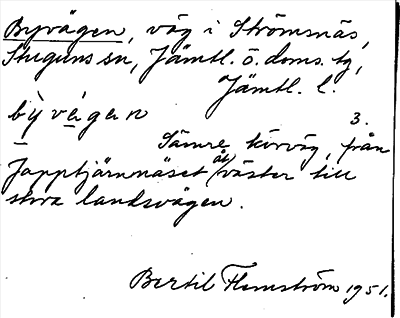 Byvägen, väg i Strömsnäs,
Stuguns sn, Jämtl. ö. doms. tg,
Jämtl. l.
by̆ vä̀gen
3.
Sämre körväg, från
Japptjärnnäset åt väster till
stora landsvägen.
Bertil Flemström 1951.